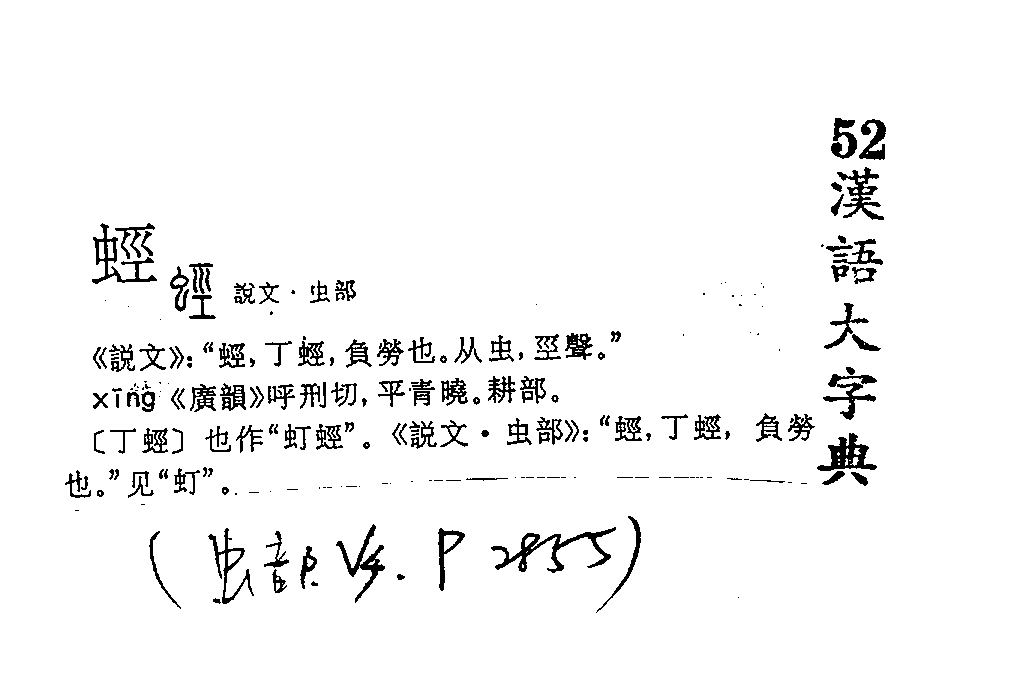 52
漢語大字典
蛵 蛵 說文·虫部
《説文》：“蛵，丁蛵，負勞也。从虫，巠聲。”
xīng《廣韻》呼刑切，平青曉。耕部。
〔丁蛵〕也作“虰蛵”。《説文·虫部》：“蛵，丁蛵，負勞
也。”见“虰”。
(虫部 V4. P 2855)